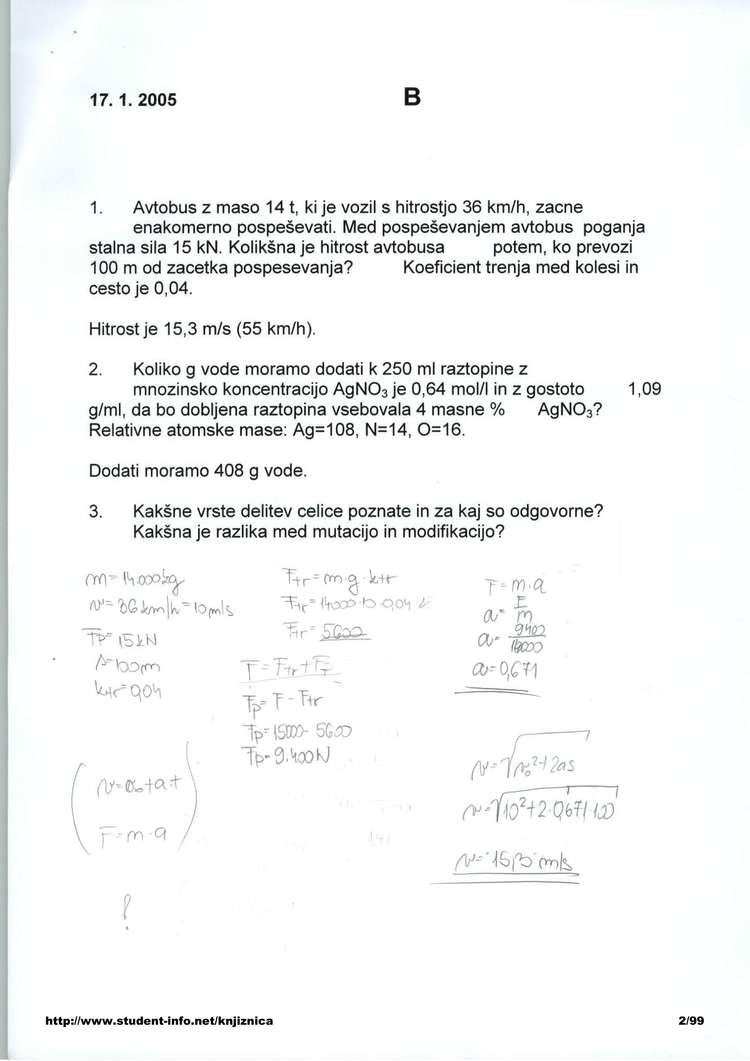 17. 1. 2005 B
1. Avtobus z maso 14 t, ki je vozil s hitrostjo 36 km/h, zacne
enakomerno pospeševati. Med pospeševanjem avtobus poganja
stalna sila 15 kN. Kolikšna je hitrost avtobusa potem, ko prevozi
100 m od zacetka pospesevanja? Koeficient trenja med kolesi in
cesto je 0,04.
Hitrost je 15,3 m/s (55 km/h).
2. Koliko g vode moramo dodati k 250 ml raztopine z
mnozinsko koncentracijo AgNO₃ je 0,64 mol/l in z gostoto 1,09
g/ml, da bo dobljena raztopina vsebovala 4 masne % AgNO₃?
Relativne atomske mase: Ag=108, N=14, O=16.
Dodati moramo 408 g vode.
3. Kakšne vrste delitev celice poznate in za kaj so odgovorne?
Kakšna je razlika med mutacijo in modifikacijo?
m=14.000kg
v=36km/h=10m/s
Fp=15kN
s=100m
ktr=0,04
(v=v₀+at
F=m·a)
?
Ftr=m·g·ktr
Ftr=14000·10·0,04
Ftr=5600
F=Ftr+Fp
Fp=F-Ftr
Fp=15000-5600
Fp=9.400N
F=m·a
a=F/m
a=9400/14000
a=0,671
v=√v₀²+2as
v=√10²+2·0,671·100
v=15,3 m/s
http://www.student-info.net/knjiznica 2/99